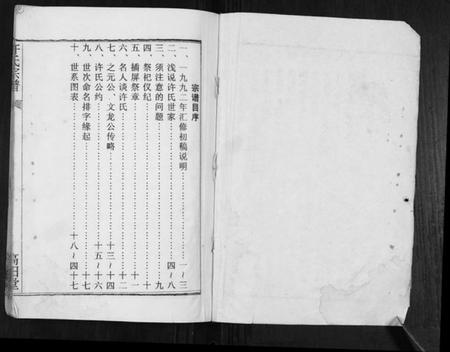 宗谱目序
一、一九九二年汇修初稿说明……一~三
二、浅说许氏世家……四~八
三、须注意的问题……九
四、祭祀仪纪……十
五、插屏祭章……十一
六、名人谈许氏……十二
七、之元公、文龙公传略……十三~十四
八、许氏公约……十五~十六
九、世次命名排字缘起……十七
十、世系图表……十八~四十七
许氏宗谱
高阳堂